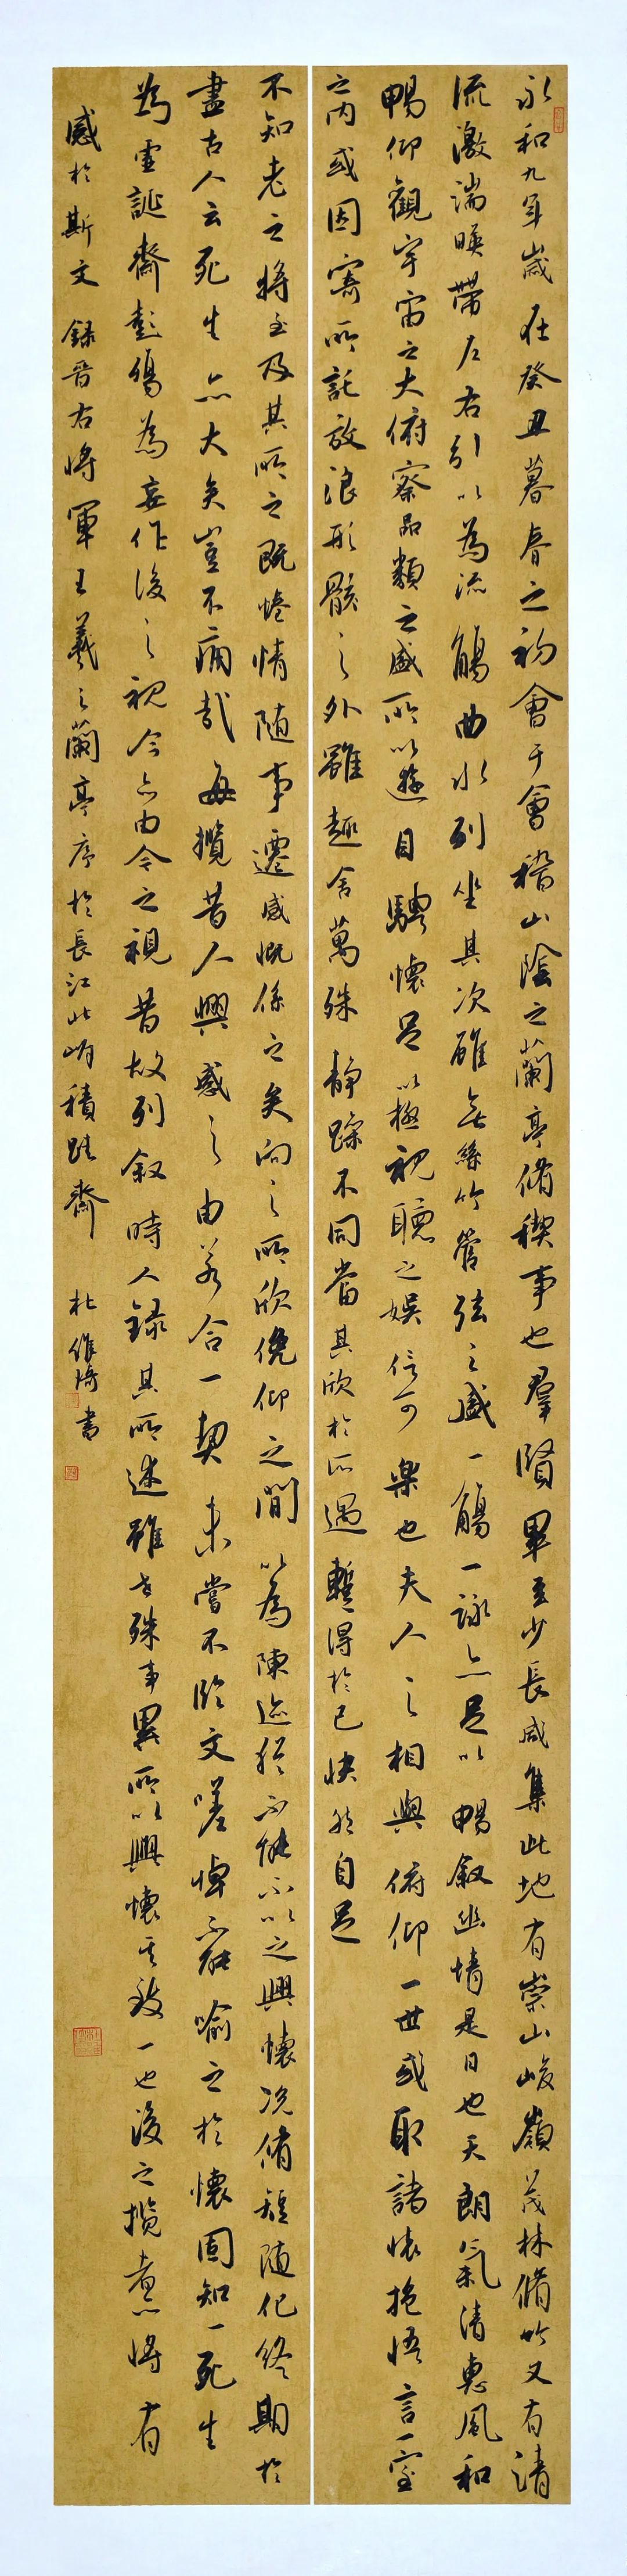 永和九年歲在癸丑暮春之初會于會稽山陰之蘭亭脩稧事也羣賢畢至少長咸集此地有崇山峻嶺茂林脩竹又有清
流激湍暎帶左右引以為流觴曲水列坐其次雖無絲竹管弦之盛一觴一詠亦足以暢叙幽情是日也天朗氣清惠風和
暢仰觀宇宙之大俯察品類之盛所以遊目騁懷足以極視聽之娛信可樂也夫人之相與俯仰一世或取諸懷抱悟言一室
之內或因寄所託放浪形骸之外雖趣舍萬殊靜躁不同當其欣於所遇暫得於己快然自足
不知老之將至及其所之既惓情隨事遷感慨係之矣向之所欣俛仰之間以為陳迹猶不能不以之興懷況脩短隨化終期於
盡古人云死生亦大矣豈不痛哉每攬昔人興感之由若合一契未嘗不臨文嗟悼不能喻之於懷固知一死生
為虛誕齊彭殤為妄作後之視今亦由今之視昔故列叙時人錄其所述雖世殊事異所以興懷其致一也後之攬者亦將有
感於斯文 錄晉右將軍王羲之蘭亭序於長江北岸積跬齋 杜維琦書